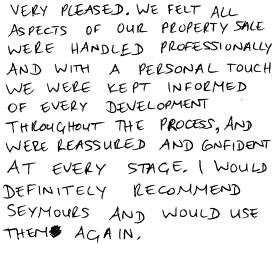 VERY PLEASED. WE FELT ALL
ASPECTS OF OUR PROPERTY SALE
WERE HANDLED PROFESSIONALLY
AND WITH A PERSONAL TOUCH
WE WERE KEPT INFORMED
OF EVERY DEVELOPMENT
THROUGHOUT THE PROCESS, AND
WERE REASSURED AND CONFIDENT
AT EVERY STAGE. I WOULD
DEFINITELY RECOMMEND
SEYMOURS AND WOULD USE
THEM AGAIN.